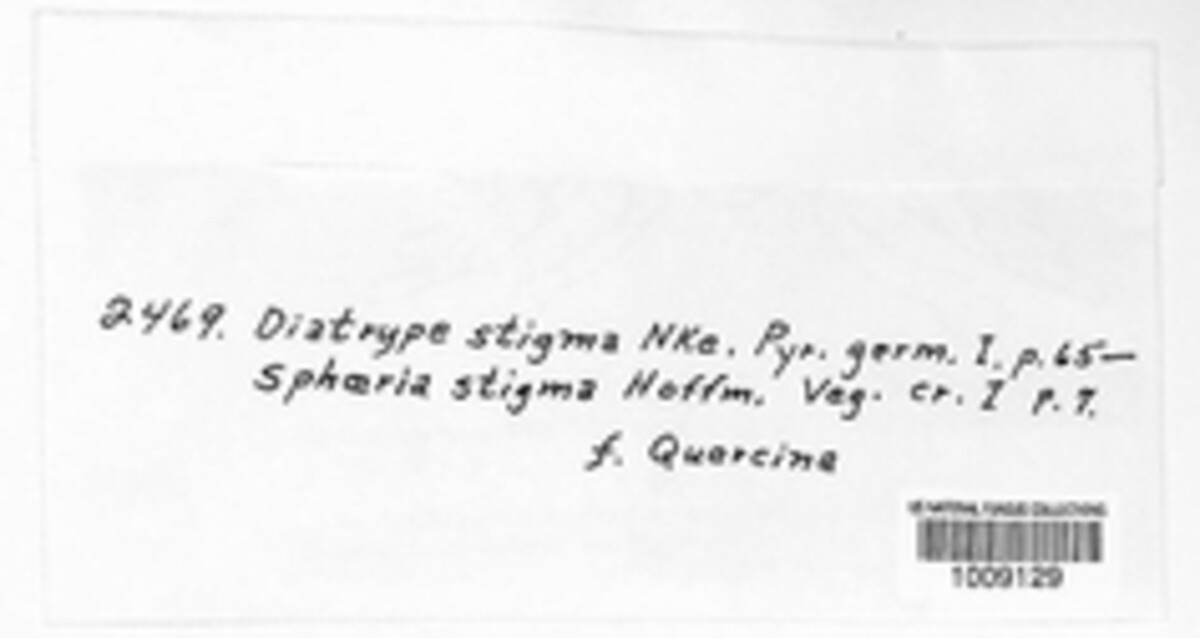 2469. Diatrype stigma NKe. Pyr. germ. I. p. 65—
Sphæria stigma Hoffm. Veg. cr. I p. 7.
f. Quercina
US NATIONAL FUNGUS COLLECTIONS
1009129